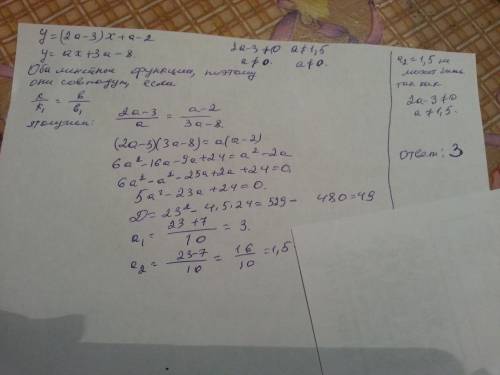 y=(2a-3)x+a-2
y=ax+3a-8.
2a-3≠0 a≠1,5
a≠0. a≠0.
Обе линейные функции, поэтому
они совпадут, если
k/k₁ = b/b₁
получаем: (2a-3)/a = (a-2)/(3a-8)
(2a-3)(3a-8)=a(a-2)
6a²-16a-9a+24=a²-2a
6a²-a²-25a+2a+24=0
5a²-23a+24=0.
D=23²-4,5.24=529- 480=49
a₁= (23+7)/10 = 3.
a₂= (23-7)/10 = 16/10 =1,5
a₂=1,5 не
может быть
так как
2a-3≠0
a≠1,5.
ответ: 3